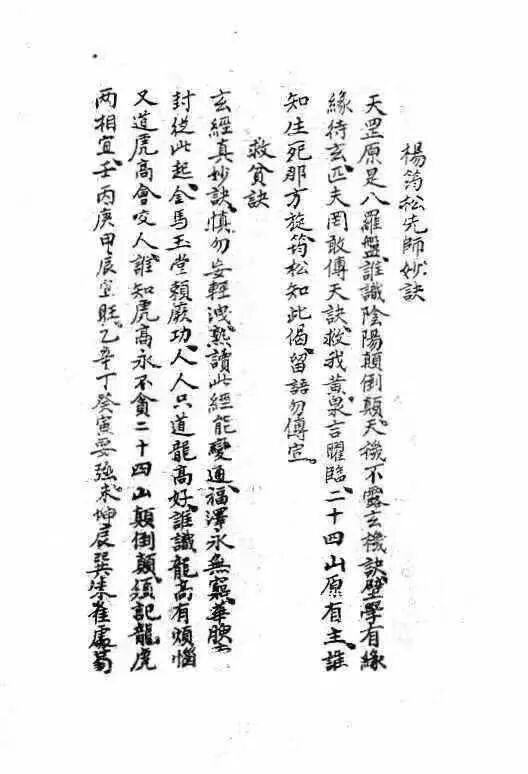 楊筠松先師妙訣
天罡原是八羅盤、誰識陰陽顛倒顛、天機不露玄機訣、學有緣
緣待玄、匹夫罔敢傳天訣、救我黃泉言曜臨、二十四山原有主、誰
知生死那方旋、筠松知此偈、留語勿傳宣。
救貧訣
玄經真妙訣、慎勿妄輕洩、熟讀此經能變通、福澤永無窮、華腴
封從此起、金馬玉堂賴厥功、人人只道龍高好、誰識龍高有煩惱
又道虎高會咬人、誰知虎高永不貪、二十四山顛倒顛、須記龍虎
兩相宜、壬丙庚甲辰宜旺、乙辛丁癸寅要強、未坤辰巽朱雀處